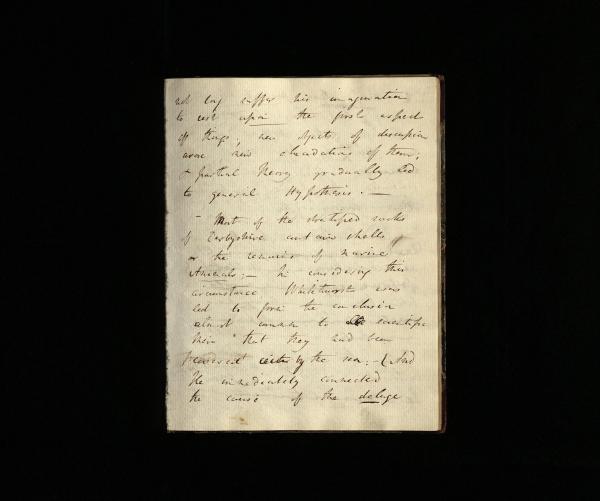 not long suffer his imagination
to rest upon the first aspect
of things, new objects of discussion
arose new elucidations of them;
& partial Theory gradually led
to general Hypothesis. —
— Most of the stratified rocks
of Derbyshire contain shells
or the remains of marine
Animals; — In considering this
circumstance Whitehurst was
led to form the conclusion
almost common to scientific
Men that they had been
produced by the sea; — And
he immediately connected
the cause of the deluge